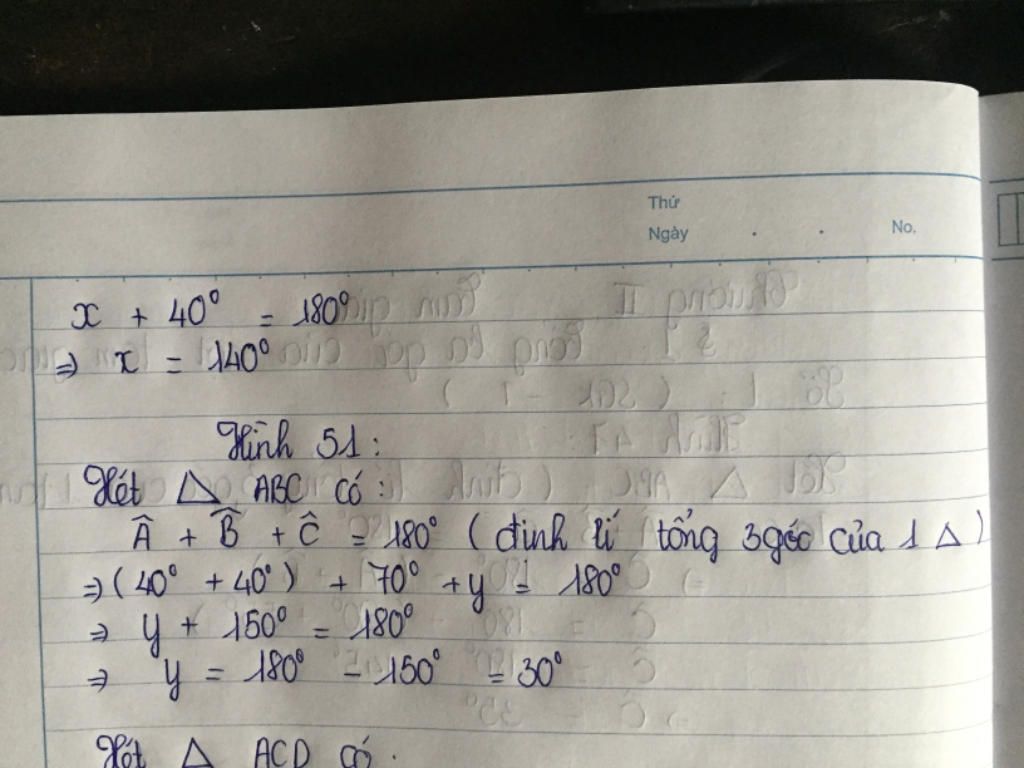 Thứ
Ngày . . No.
x + 40° = 180°
⇒ x = 140°
Hình 51:
Xét △ ABC có:
Â + B̂ + Ĉ = 180° (định lí tổng 3 góc của 1 △)
⇒ (40° + 40°) + 70° + y = 180°
⇒ y + 150° = 180°
⇒ y = 180° - 150° = 30°
Xét △ ACD có: